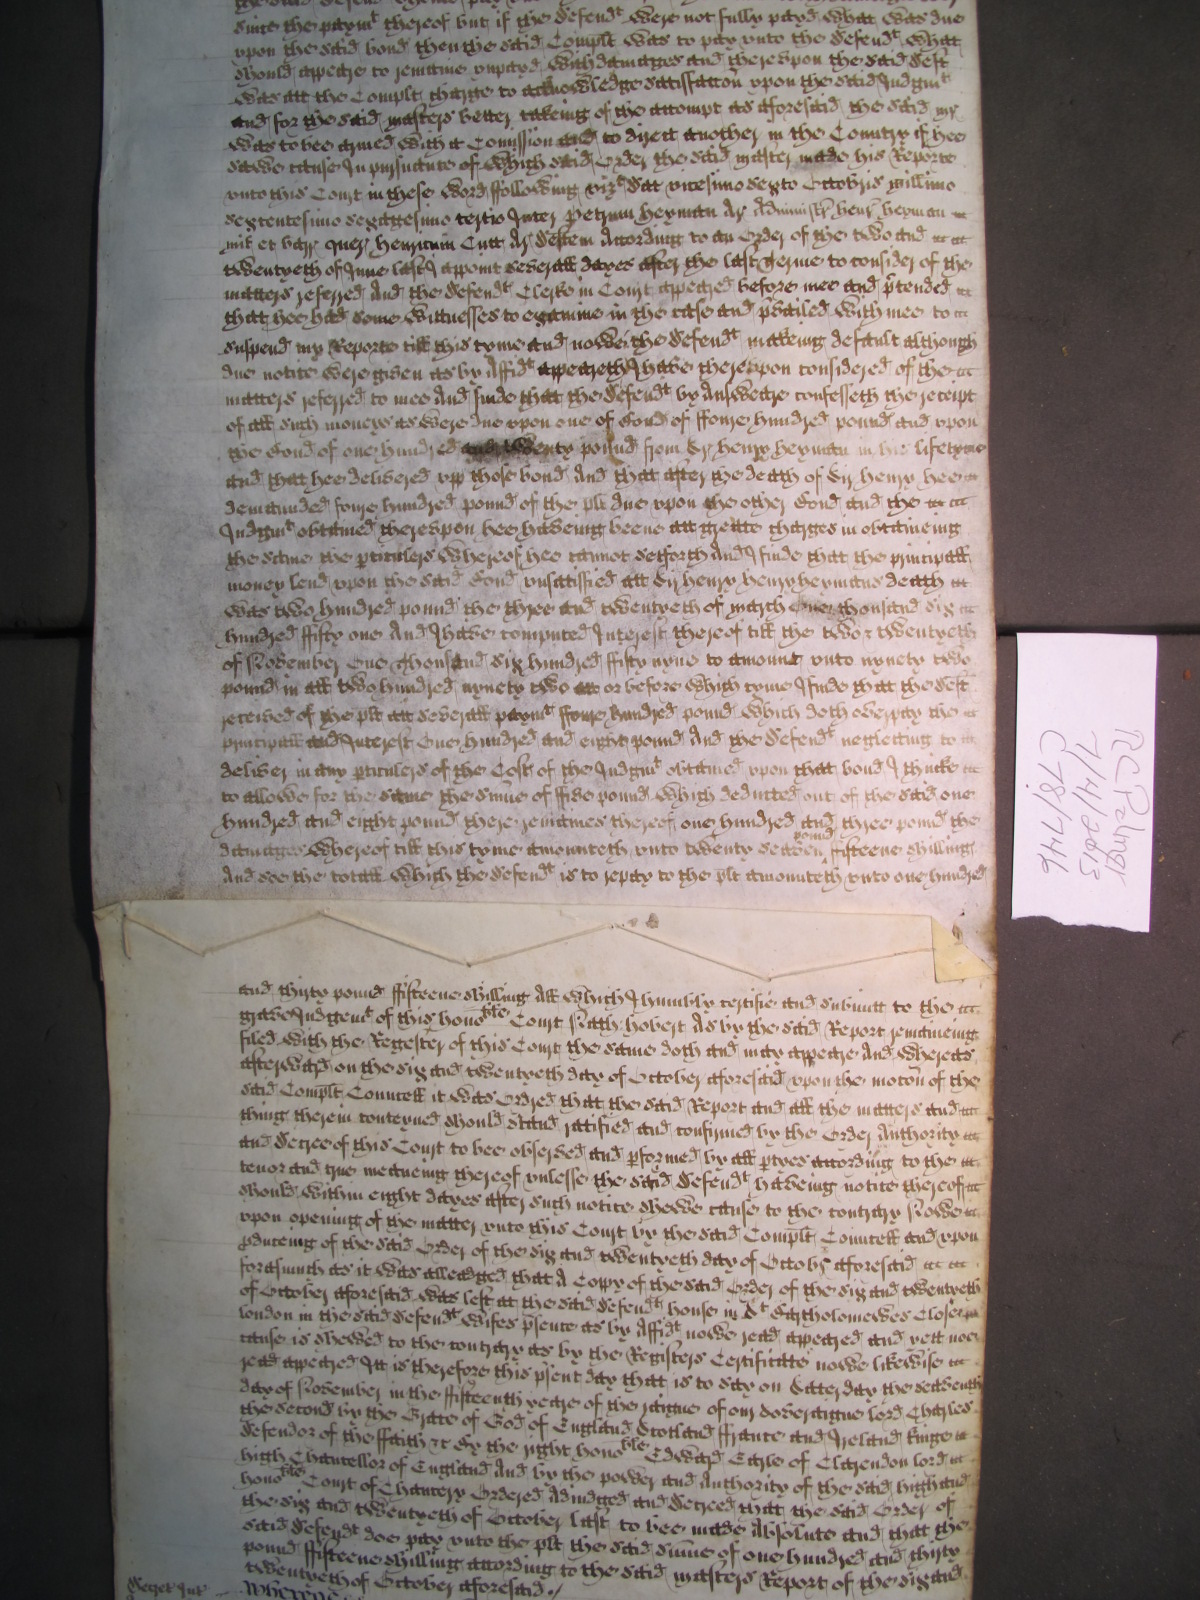 since the paymt thereof but if the defendt were not fully payd what was due
upon the said bond then the said Complt was to pay unto the defendt what
should appeare to remaine unpayd with damages and thereupon the said deft
was att the Complts charge to acknowledge satisfaccon upon the said Judgmt
and for the said masters better takeing of the accompt as aforesaid the said mr
was to bee armed with a Comission and to direct another in the Country if hee
sawe cause In pursuance of which said Order the said master made his Reporte
unto this Court in these words following vizt dat vicesimo sexto Octobris millimo
sexcentesimo sexagesimo tertio Inter Petrum heyman Ar Administr henr heyman
mil et barr quer henricum Cutt Ar deftem According to an Order of the two and
twentyeth of June last I appoint severall dayes after the last Terme to consider of the
matters referred And the defendts Clerke in Court appeared before mee and ptended
that hee had some Witnesses to examine in the case and pvailed with mee to
suspend my Reporte till this tyme and nowe the defendt makeing default although
due notice were given as by Affidt appeareth I have thereupon considered of the
matters referred to mee And finde that the defendt by Answeare confesseth the receipt
of all such moneys as were due upon one of Bond of ffoure hundred pound and upon
the Bond of one hundred and twenty pound from Sr henry heyman in his lifetyme
and that hee delivered upp those bond And that after the death of Sir henry hee
demaunded foure hundred pound of the plt due upon the other Bond and the
Judgmt obtained thereupon hee haveing beene att greate charges in obtaineing
the same the pticulers whereof hee cannot setforth And I finde that the principall
money lend upon the said Bond unsatisfied att Sir henry henry heymans death
was two hundred pound the three and twentyeth of march One thousand six
hundred ffifty one And I have computed Interest thereof till the two & twentyeth
of November One thousand six hundred ffifty nyne to amount unto nynety two
pound in all two hundred nynety two att or before which tyme I finde that the deft
received of the plt att severall paymts ffoure hundred pound which doth overpay the
principall and Interest One hundred and eight pound And the defendt neglecting to
deliver in any pticulers of the Cost of the Judgmt obtained upon that bond I thinke
to allowe for the same the sume of five pound which deducted out of the said one
hundred and eight pound there remaines thereof one hundred and three pound the
damages whereof till this tyme amounteth unto twenty seaven pound fifteene shilling
And soe the totall which the defendt is to repay to the plt amounteth unto one hundred
and thirty pound ffifteene shilling All which I humbly certifie and submitt to the
grave Judgemt of this honoble Court Nath: hobert As by the said Report remaineing
filed with the Register of this Court the same doth and may appeare And whereas
afterward on the six and twentyeth day of October aforesaid upon the mocon of the
said Complt Councell it was Ordred that the said Report and all the matters and
thing therein conteyned should stand ratified and confirmed by the Order Authority
and decree of this Court to bee observed and pformed by all ptyes according to the
tenor and true meaneing thereof unlesse the said defendt haveing notice thereof
should within eight dayes after such notice shewe cause to the contrary Nowe
upon opening of the matter unto this Court by the said Complt Councell and upon
pduceing of the said Order of the six and twentyeth day of Octobr aforesaid
forasmuch as it was alleadged that A Copy of the said Order of the six and twentyeth
of October aforesaid was left at the said defendts house in St Bartholomewes Close
london in the said defendts wifes psence as by Affidt nowe read appeared and yett noe
cause is shewed to the contrary as by the Registers Certificate nowe likewise
read appeared Itt is therefore this psent day that is to say on Satterday the seaventh
day of November in the ffifteenth yeare of the raigne of our soveraigne lord Charles
the second by the Grace of God of England Scotland ffrance and Ireland kinge
defendor of the ffaith &c By the right honoble Edward Earle of Clarendon lord
high Chancellor of England And by the power and Authority of the said high and
honoble Court of Chancery Ordered Adiudged and decreed that the said Order of
the six and twentyeth of October last to bee made Absolute and that the
said defendt doe pay unto the plt the said sume of one hundred and thirty
pound ffifteene shilling according to the said masters Report of the six and
twentyeth of October aforesaid
Whereas
RC Palmer
7/4/2013
C78/746